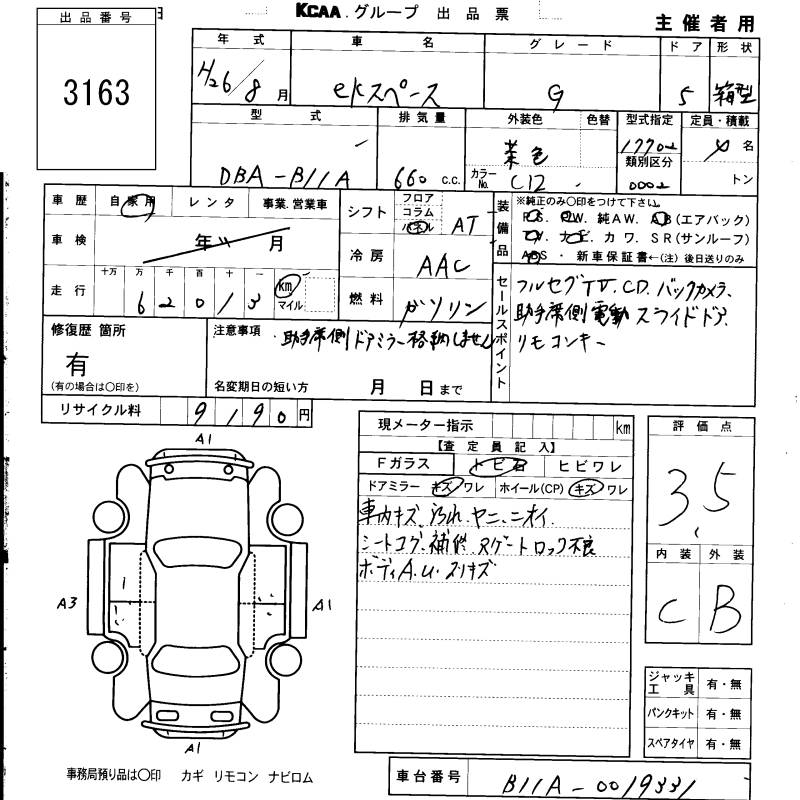 KCAA.グループ 出品票
主催者用
出品番号
3163
年式 車名 グレード ドア 形状
H26/8月 eKスペース G 5 箱型
型式 排気量 外装色 色替 型式指定 定員・積載
DBA-B11A 660 c.c. 茶色 17702 4名
カラーNo. C12 類別区分 0002 トン
車歴 自家用 レンタ 事業.営業車
シフト フロア コラム パネル AT
装備品 ※純正のみ○印をつけて下さい。
P.S. P.W. 純AW. A.B(エアバック)
T.V. ナビ. カワ. SR(サンルーフ)
ABS ・ 新車保証書←(注)後日送りのみ
車検 年 月
冷房 AAC
走行 十万 万 千 百 十 一
62013 km マイル
燃料 ガソリン
セールスポイント
フルセグTV.CD.バックカメラ.
助手席側電動スライドドア.
リモコンキー
修復歴 箇所
有
(有の場合は○印を)
注意事項 助手席側ドアミラー格納しません
名変期日の短い方 月 日まで
リサイクル料 9190円
現メーター指示 km
【査定員記入】
Fガラス トビ石 ヒビワレ
ドアミラー キズ ワレ ホイール(CP) キズ ワレ
車内キズ.汚れ.ヤニ.ニオイ.
シートコゲ.補修.Rゲートロック不良
ボディA.U.スリキズ
評価点
3.5
内装 外装
C B
A1
A3
A1
A1
ジャッキ 工具 有・無
パンクキット 有・無
スペアタイヤ 有・無
事務局預り品は○印 カギ リモコン ナビロム
車台番号 B11A-0019331